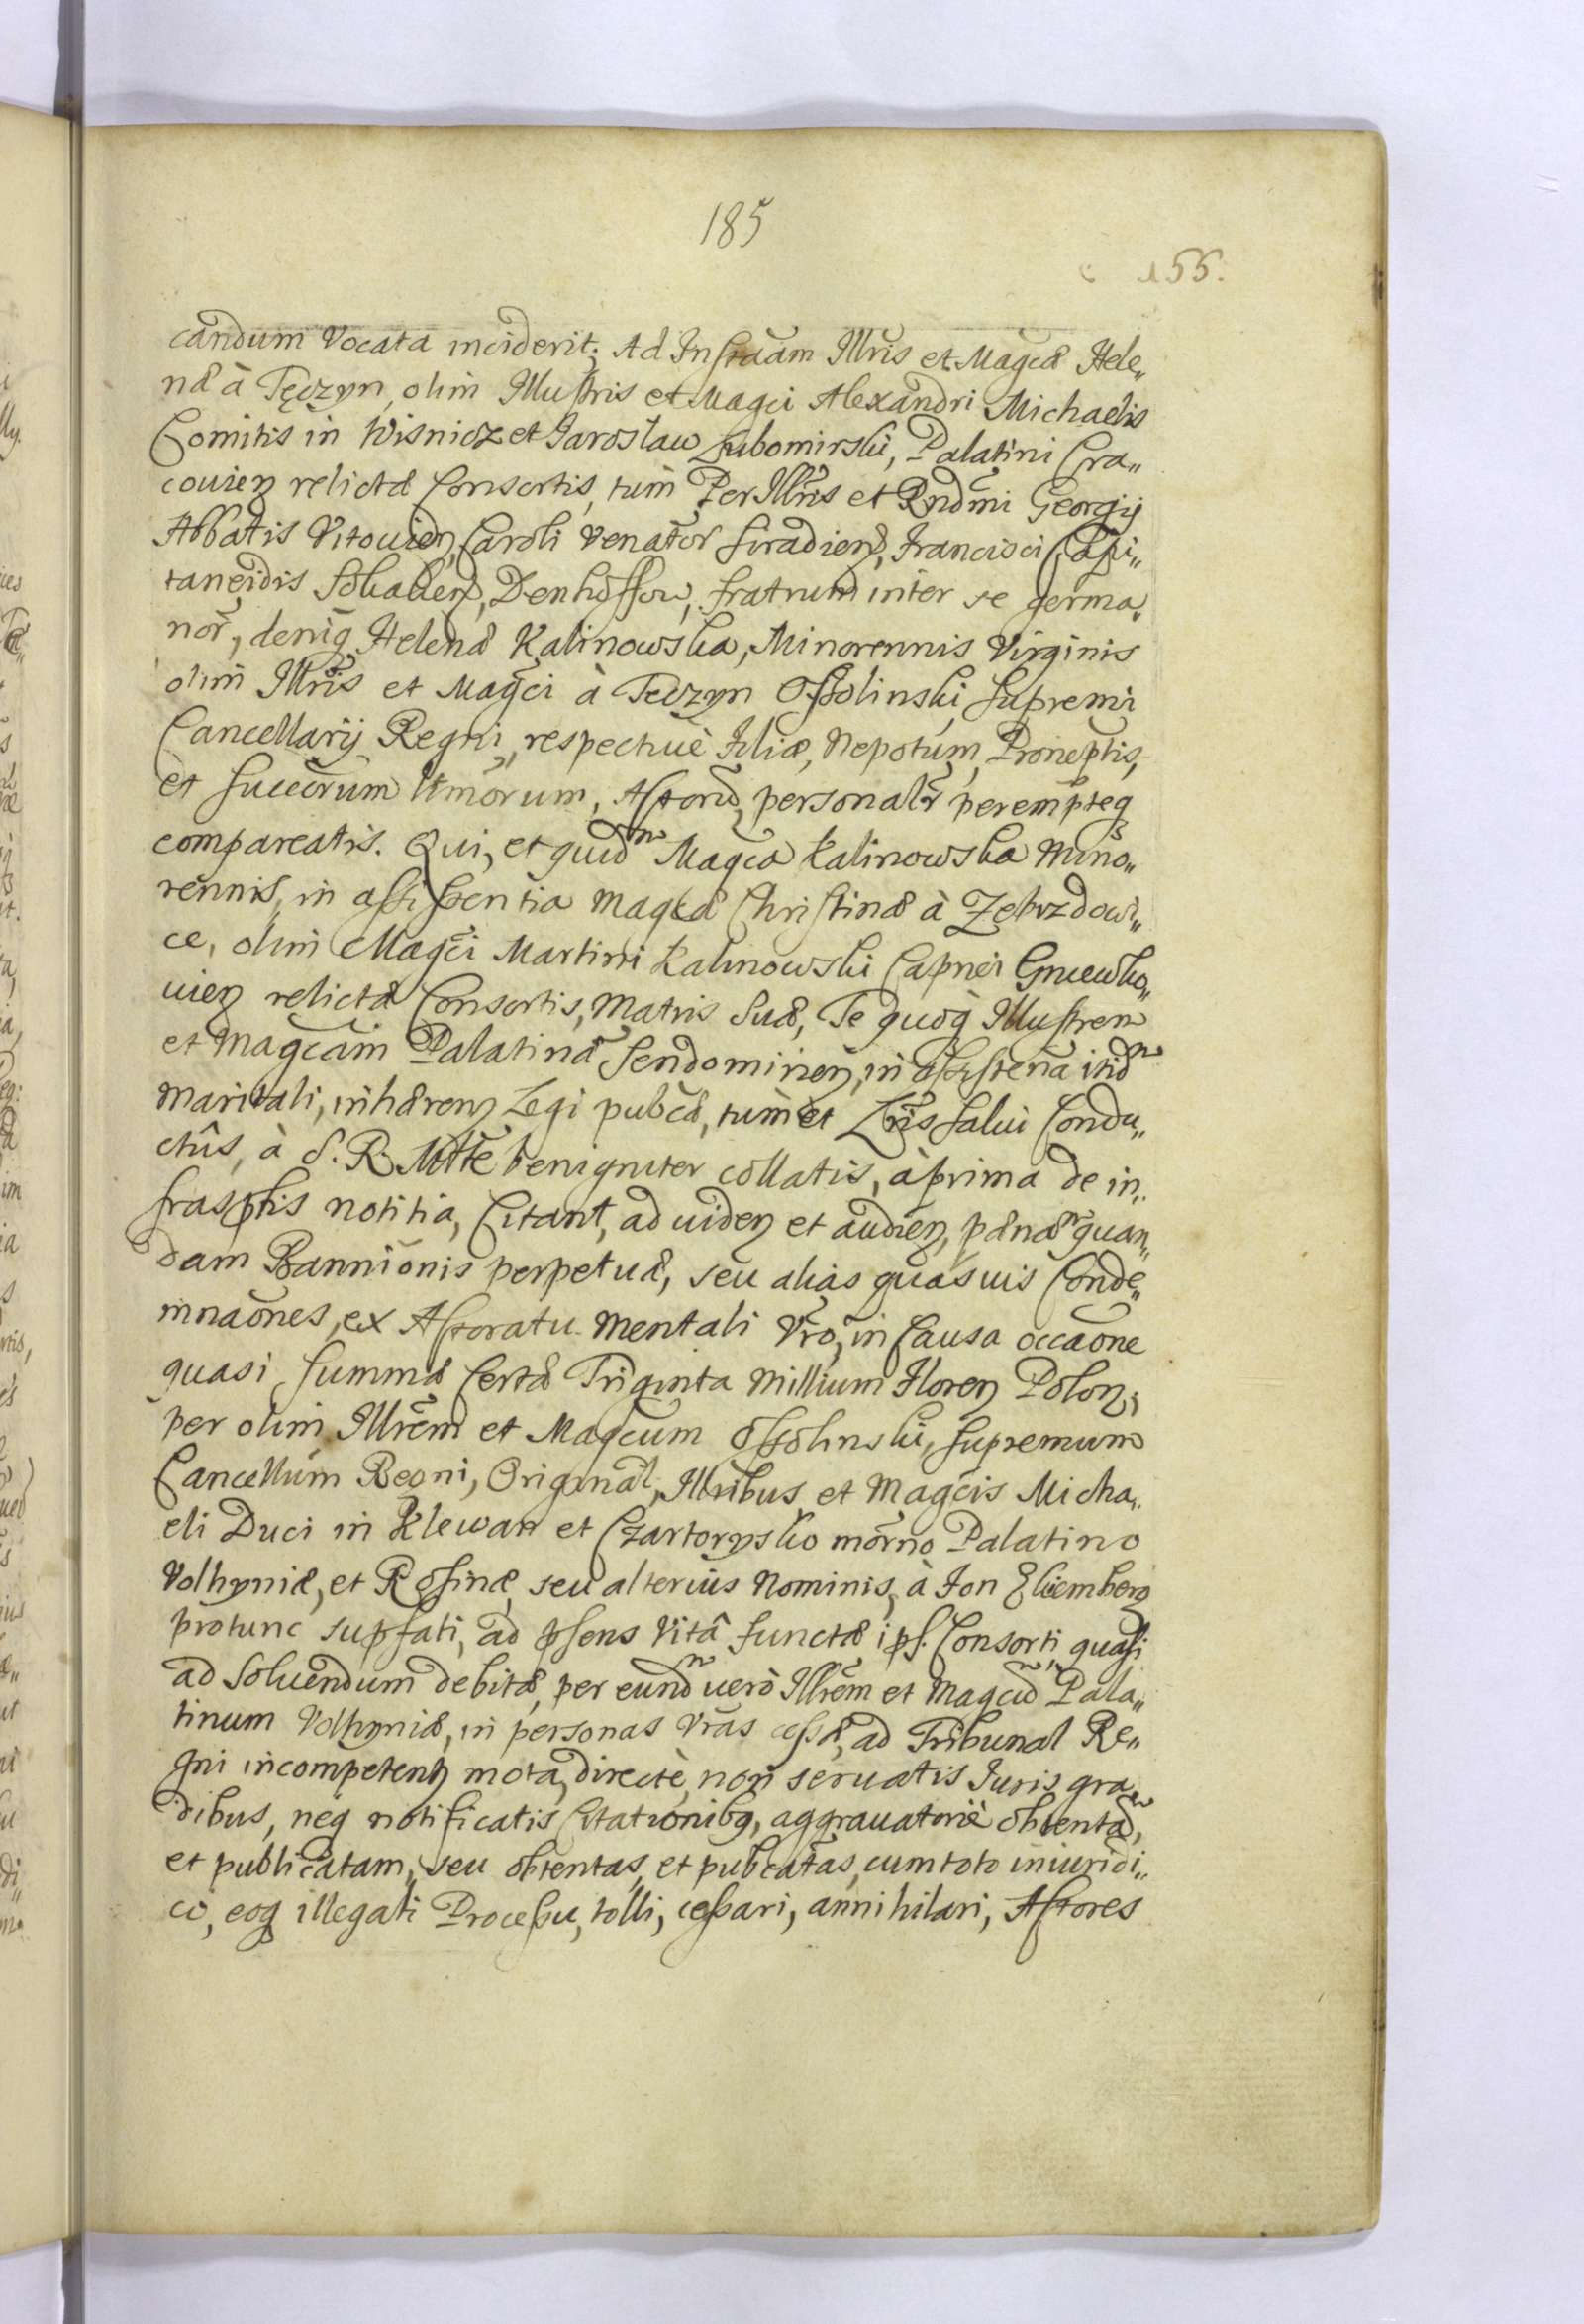 185
155.
candum Vocata inciderit; Ad Instãam Illris et Magcæ Hele„
næ à Tęczyn, olim Illustris et Magci Alexandri Michaelis
Comitis in Wisnicz et Jaroslaw Lubomirski, Palatini Cra„
covien relictæ Consortis, tum Per Illris et Rndmi Georgij
Abbatis Vitovien, Caroli Venator Siradien, Francisci Capi„
taneidis Sokalien, Denhoffow, fratrum inter se germa„
nor, deniq Helenæ Kalinowska, Minorennis Virginis
olim Illris et Magci à Teczyn Ossolinski Supremi
Cancellarij Regni, respectivè Filiæ, Nepotum, Proneptis,
et Succorum Ltmorum, Actorũ, personalr perempteq
compareatis. Qui, et quidm Magca Kalinowska Mino„
rennis, in assistentia Magcæ Christinæ à Zebrzdowi„
ce, olim Magci Martini Kalinowski Capnei
relictæ Consortis, Matris Suæ, Te quoq Illustrem
et Magcam Palatinã Sendomirien, in assistena itidm
Maritali, inhæren Legi pubcæ, tum et Lris Salvi Condu„
ctûs, à S. R. Mtte benigniter collatis, à prima de in„
frasptis notitia, Citant, ad viden et audien, pænãm quan„
dam Bannionis perpetuæ, seu alias quasvis Conde„
mnaones, ex Actoratu Mentali Vro, in Causa occaone
quasi Summæ Certæ Triginta Millium Floren Polon,
per olim Illrem et Magcum Ossolinski, Supremum
Cancellum Regni, Original, Illribus et Magcis Micha„
eli Duci in Klewan et Czartorysko mõrno Palatino
Volhyniæ, et Rosinæ, seu alterius Nominis, à
protunc supfati, ad psens Vitâ functæ ips. Consorti, quasi
ad Solvendum debitæ, per eundm verò Illrem et Magcũm Pala„
tinum Volhyniæ, in personas Vras cessæ, ad Tribunal Re„
gni incompetent mota, directè, non servatis Juris gra„
dibus, neq notificatis Citationibq, aggravatoriè obtentam,
et publicatam, seu obtentas, et pubcatas, cum toto iniuridi„
co, eoq illegali Processu, tolli, cessari, annihilari, Actores